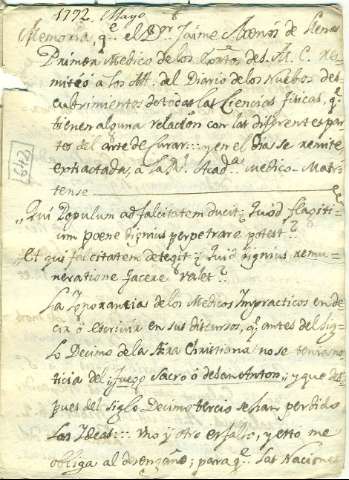 1792. Mayo 6
Memoria, q.e el D.r Jaime Menós de Llena
Primer Medico de los de S. M. C. re-
miteó a los AA. del Diario de los Nuebos des
cubrimientos de todas las Ciencias fisicas, q.e
tienen alguna relación con las diferentes par
tes del arte de curar::: y en el dia se remite
extractada, a la R.l Acad.a Medico-Matri
tense
642
„Qui Populum ad falcitatem ducit; Quod flagiti-
um poene dignius perpetrare potest?
„Et qui falcitatem detegit; Quid dignius remu-
neratione facere valet?
La Ignorancia de los Medicos Impracticos en de
cir ó escrivir en sus discursos, q.e antes del Sig-
lo Decimo de la Æra Christiana no se tenia no
ticia del fuego Sacro ó de San Anton, y que des
pues del Siglo Decimo tercio se han perdido
las Ideas::: Uno y otro es falso, y esto me
obliga al desengaño; para q.e las Naciones